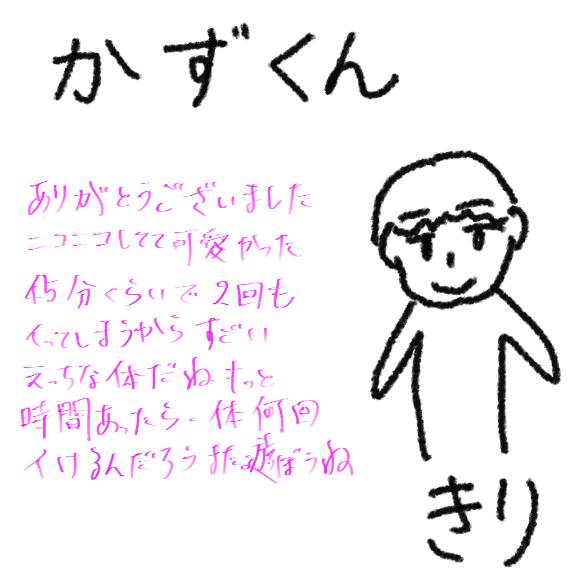 かずくん
ありがとうございました
ニコニコしてて可愛かった
15分くらいで2回も
イってしまうからすごい
えっちな体だねもっと
時間あったら一体何回
イけるんだろうまた遊ぼうね
きり